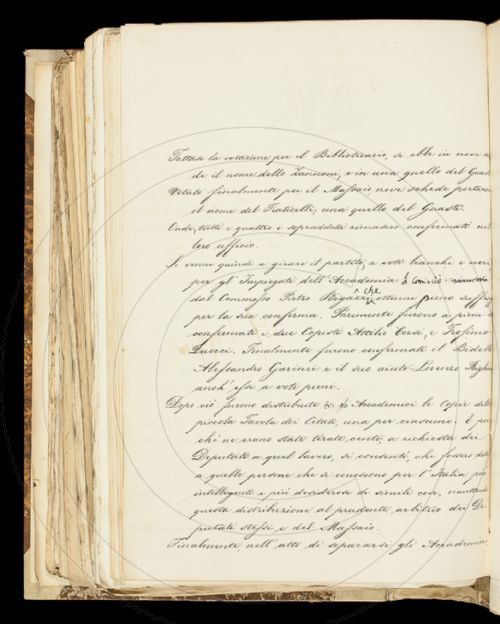 Fattasi la votazione per il Bibliotecario, si ebbe in nove
de il nome dello Zannoni, e in una quello del Guas
Votate finalmente per il Massaio nove schede portaro
il nome del Fraticelli, una quello del Guasti.
Onde, tutti e quattro i sopraddetti rimasero confermati nel
loro ufficio.
Si venne quindi a girare il partito, a voti bianchi e neri
per gl'Impiegati dell'Accademia
dal Commesso Pietro Bigazzi, che ottenne pieno suffra
per la sua conferma. Parimente furono a pieni
confermati i due Copisti Attilio Corsi, e Trofimo
Querci. Finalmente furono confermati il Bidello
Alessandro Garinei e il suo aiuto Lorenzo Righi
anch'essi a voti pieni.
Dopo ciò furono distribuite Accademici le Copie della
piccola Tavola dei Citati, una per ciascuno. E poi
chè ne erano state tirate cento, a richiesta dei
Deputati a quel lavoro, si consentì, che fossero da
a quelle persone che si conoscono per l'Italia più
intelligenti e più desiderose di simili cose, rimettendo
questa distribuzione al prudente arbitrio dei De
putati stessi e del Massaio.
Finalmente nell'atto di separarsi gli Accademici